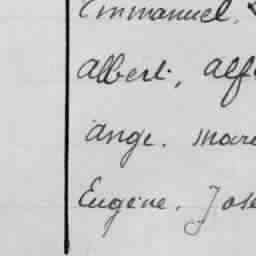 Emmanuel.
Albert, Alf
Ange. Mar
Eugène. Jose